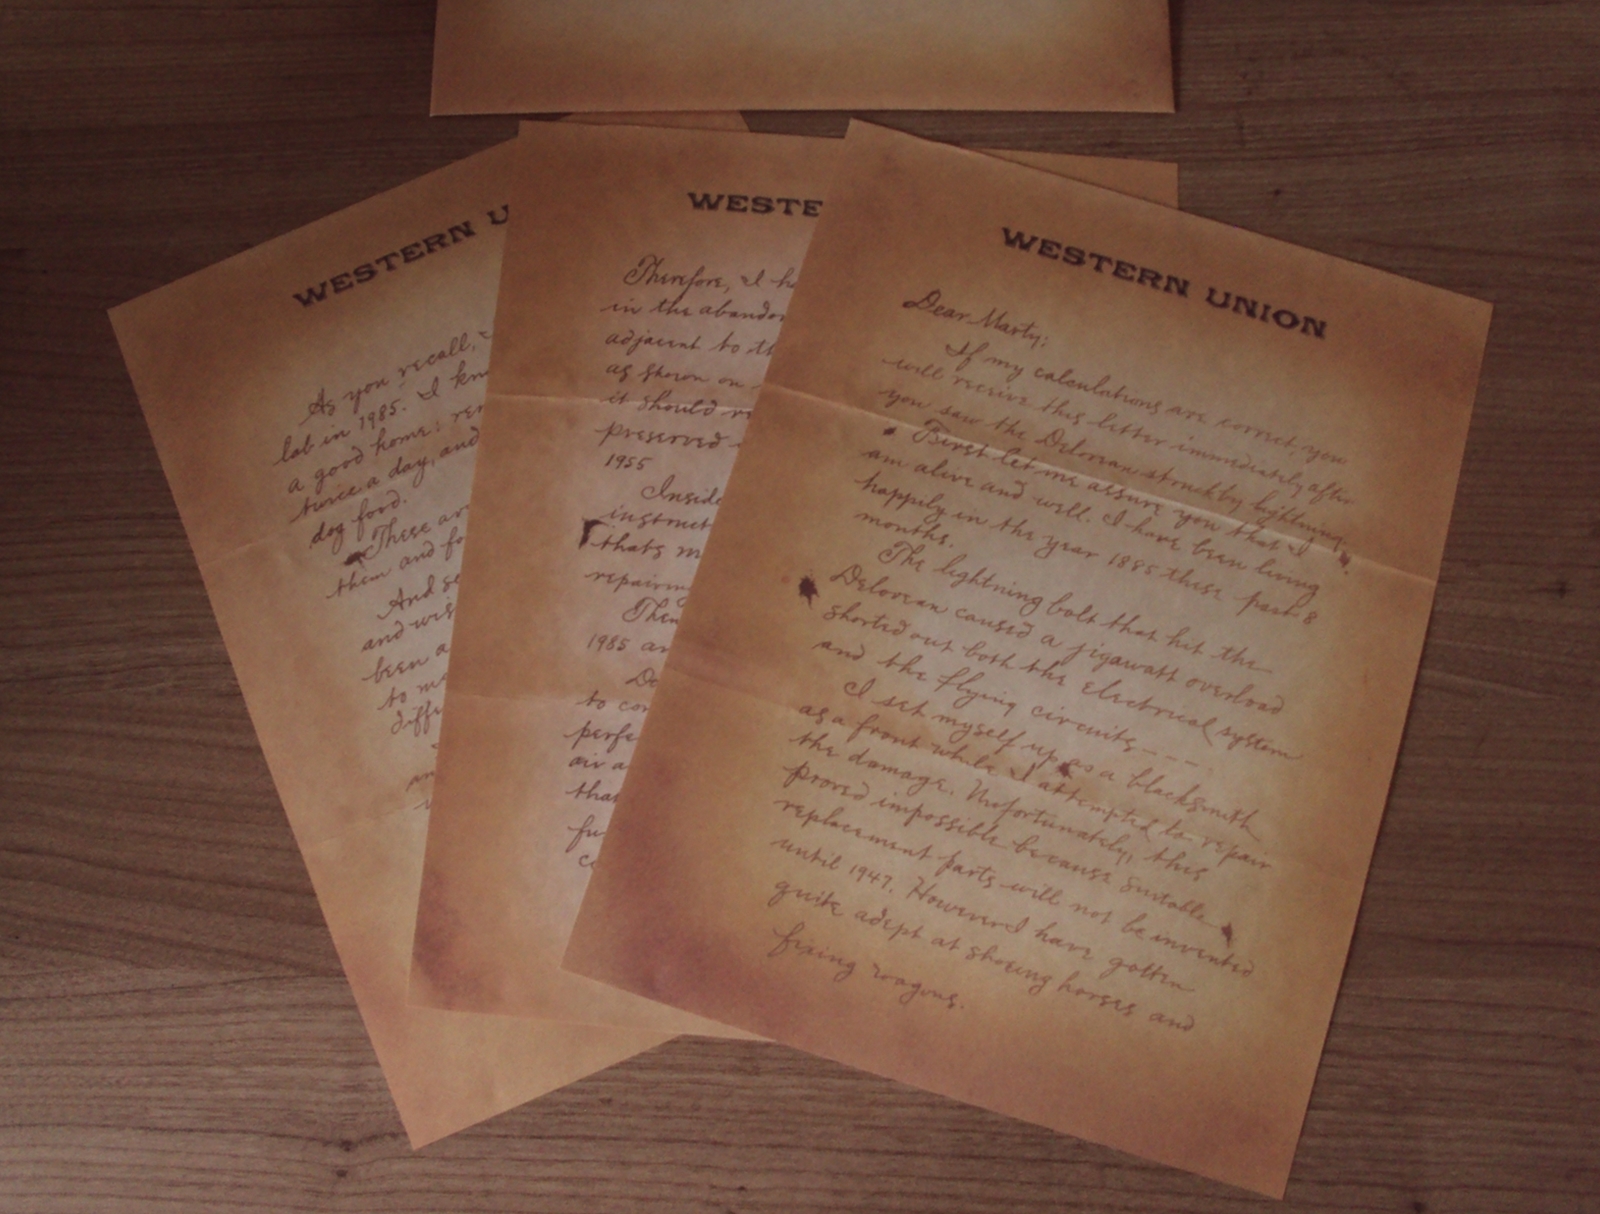 WESTERN U
As you recall,
lab in 1985. I kn
a good home: re
twice a day, and
dog food.
These ar
them and fo
And se
and wis
been a
to m
diffe
an
WESTE
Therefore, I h
in the abandon
adjacent to th
as shown on
it should r
preserved
1955
Inside
instruct
thats m
repairing
Then
1985 an
Do
to con
perfe
air a
that
fu
co
WESTERN UNION
Dear Marty;
If my calculations are correct, you
will recieve this letter immediately after
you saw the Delorean struck by lightning.
First let me assure you that I
am alive and well. I have been living
happily in the year 1885 these past 8
months.
The lightning bolt that hit the
Delorean caused a jigawatt overload
shorted out both the electrical system
and the flying circuits - - - .
I set myself up as a blacksmith
as a front while I attempted to repair
the damage. Unfortunately, this
proved impossible because suitable
replacement parts will not be invented
until 1947. However I have gotten
quite adept at shoeing horses and
fixing wagons.